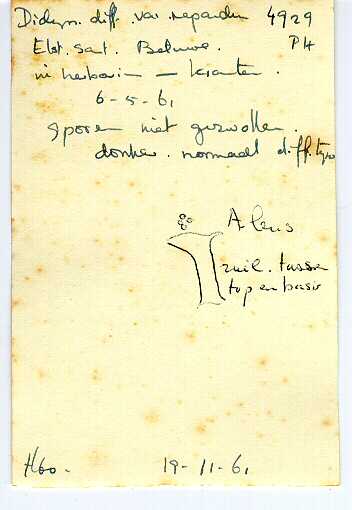 Didym. diff. var. repandum 4929
Elst. Sant. Betuwe. PH
in herbarium — kranten.
6-5-61
sporen niet gezwollen.
donker. normaal diff. type
A lens
zuil. tussen
top en basis
H60. 19-11-61